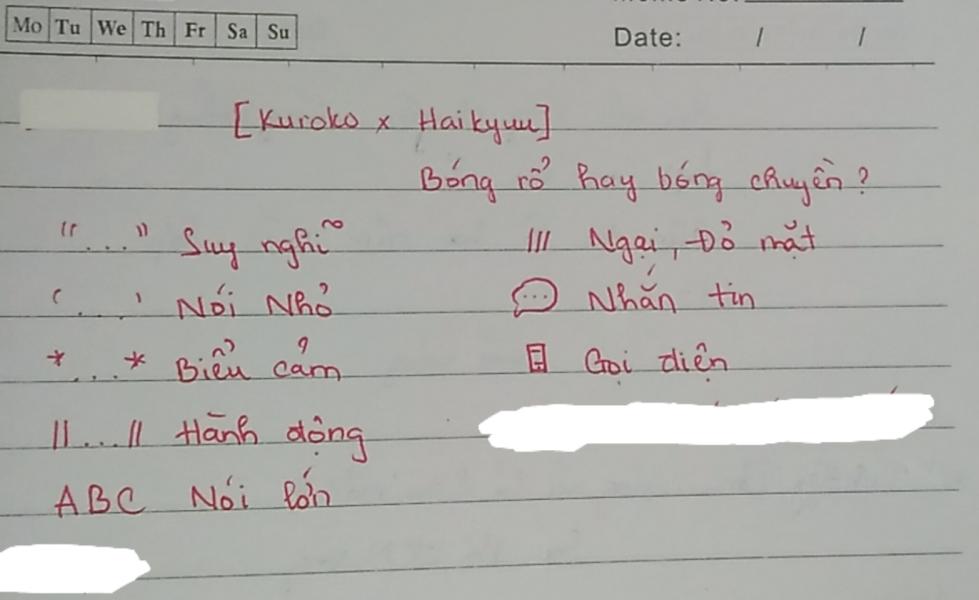 Mo Tu We Th Fr Sa Su
Date: / /
[Kuroko x Haikyuu]
Bóng rổ hay bóng chuyền?
"..." Suy nghĩ
/// Ngại, Đỏ mặt
'...' Nói Nhỏ
Nhắn tin
*...* Biểu cảm
Gọi điện
||...|| Hành động
ABC Nói lớn